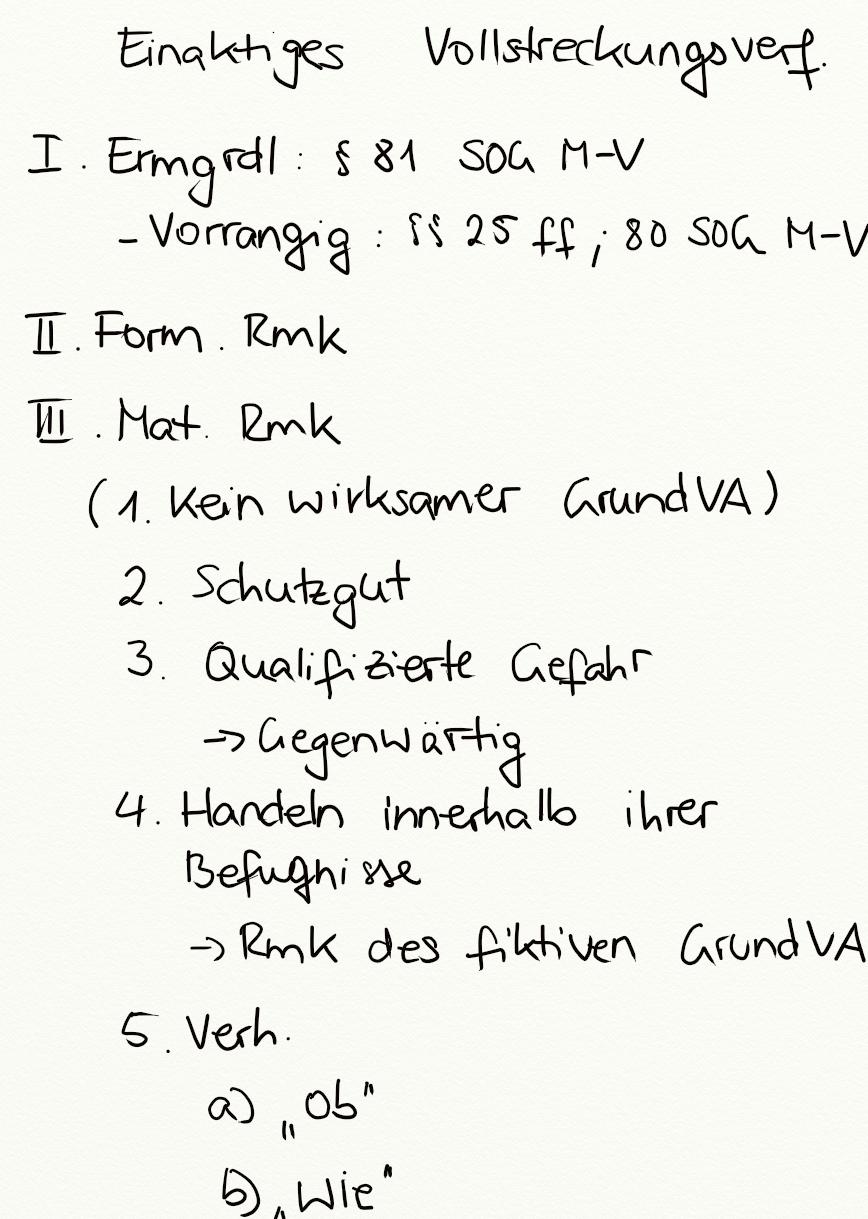 Einaktiges Vollstreckungsverf.
I. Ermgrdl: § 81 SOG M-V
- Vorrangig: §§ 25 ff; 80 SOG M-V
II. Form. Rmk
III. Mat. Rmk
(1. Kein wirksamer GrundVA)
2. Schutzgut
3. Qualifizierte Gefahr
-> Gegenwärtig
4. Handeln innerhalb ihrer
Befugnisse
-> Rmk des fiktiven GrundVA
5. Verh.
a) „Ob"
b) „Wie"